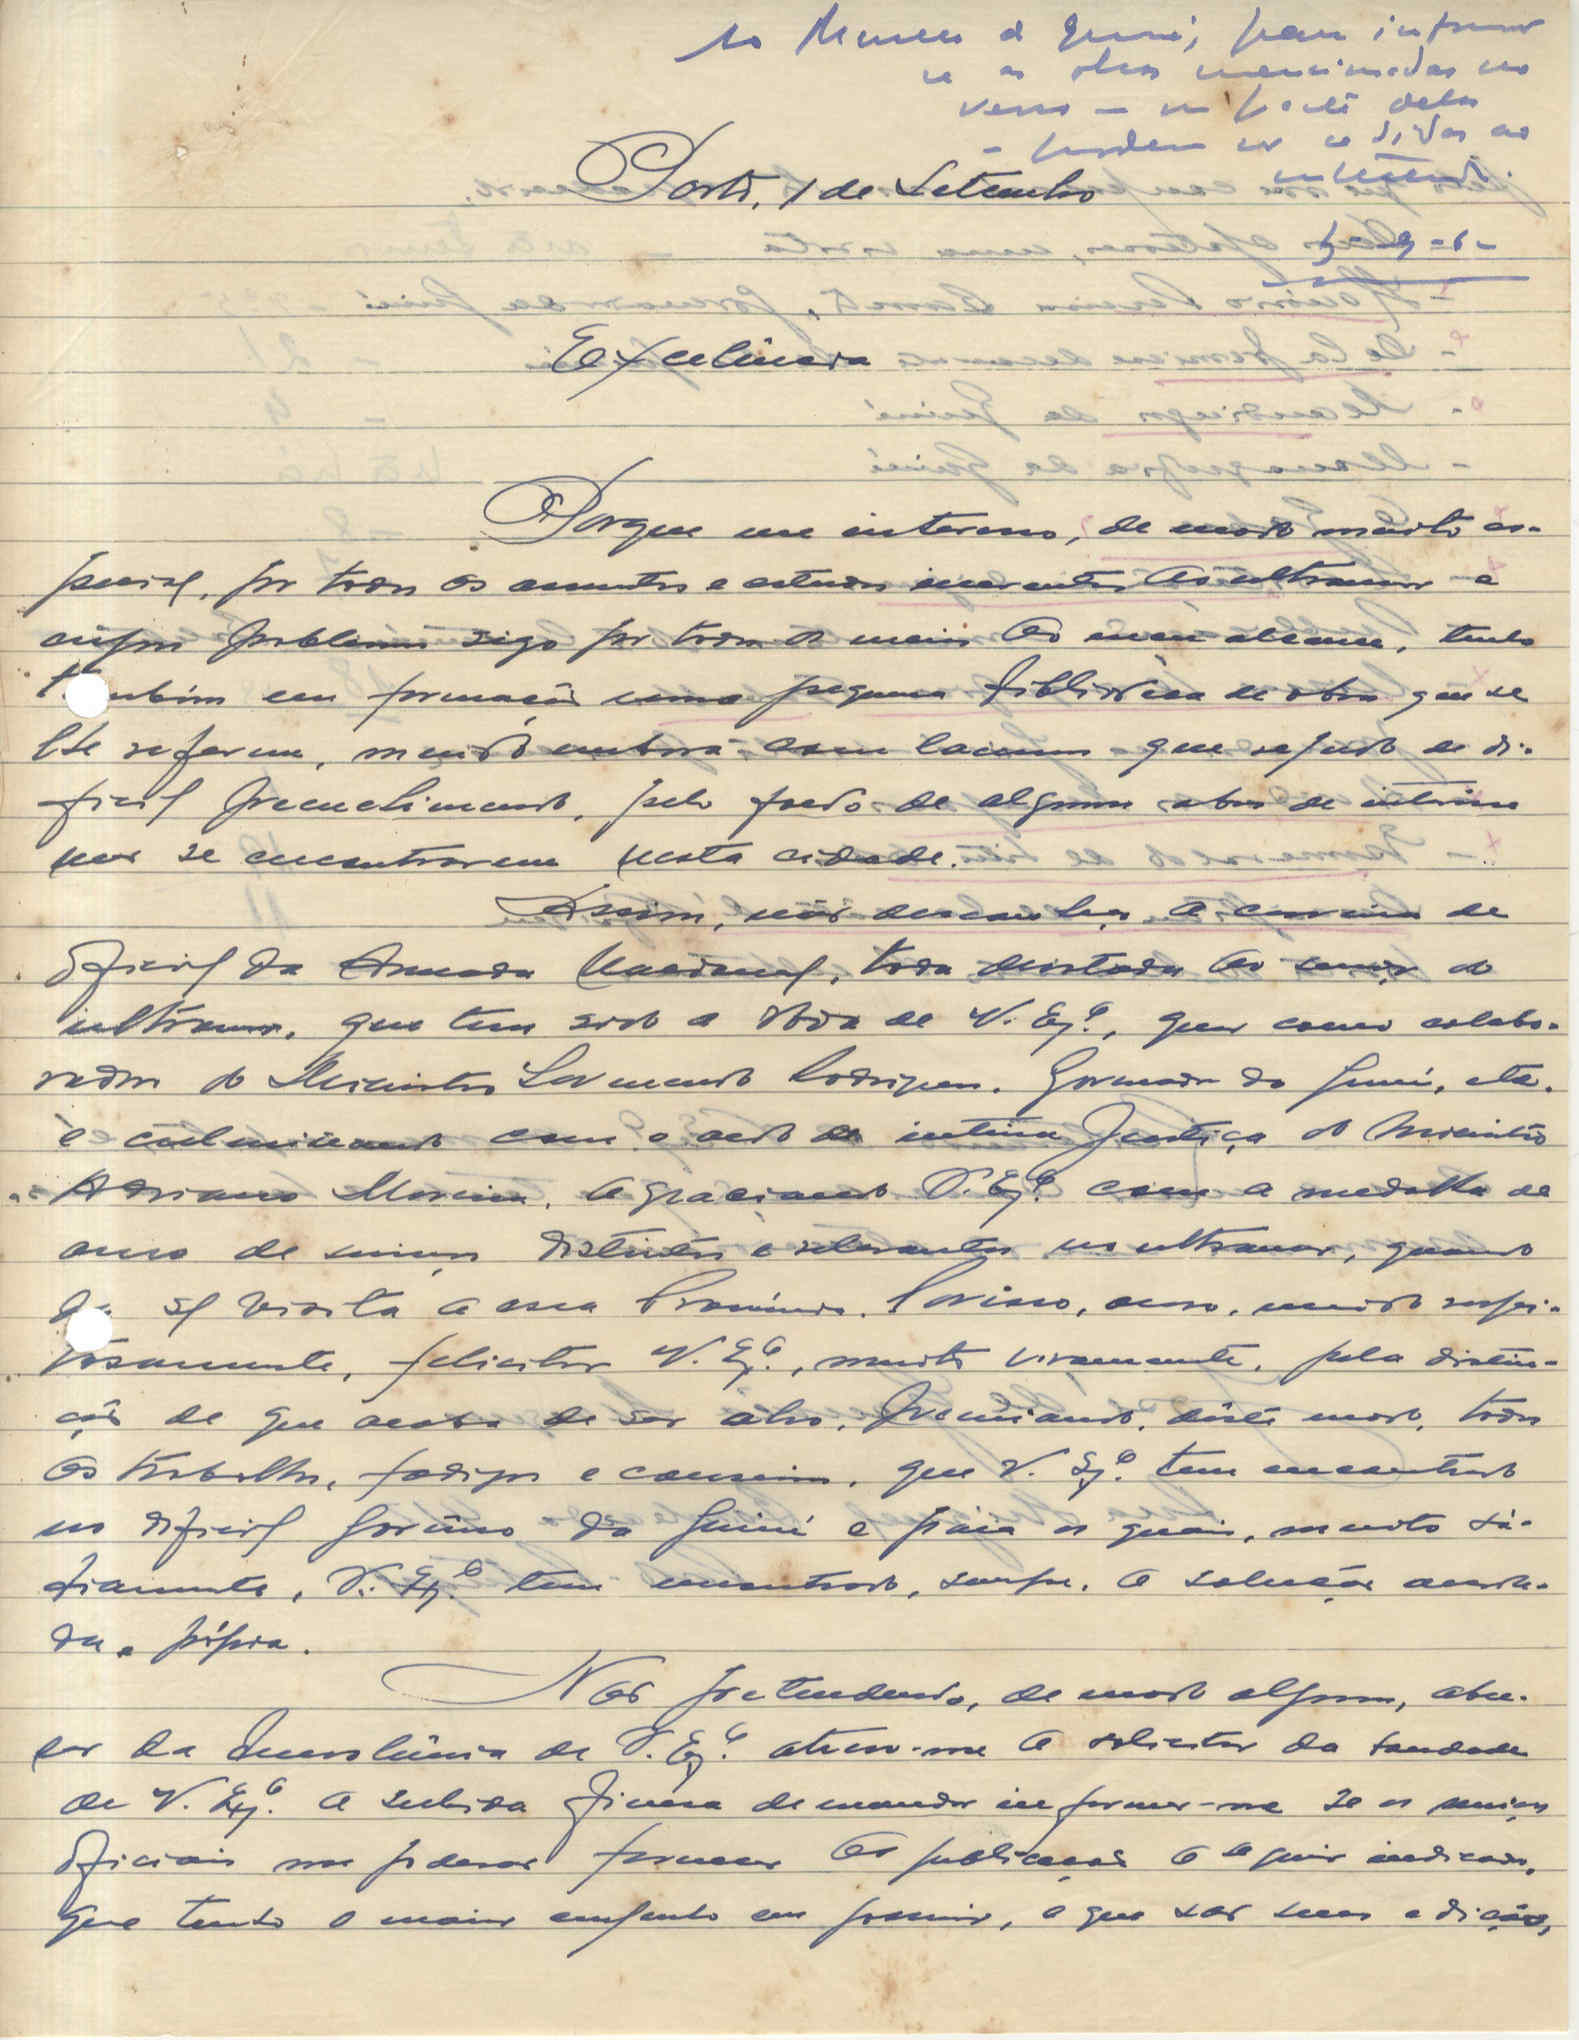 Ao Museu da Guiné, para informar
se as obras mencionadas no
verso — ou parte delas
— podem ser cedidas ao
interessado.
Porto, 1 de Setembro
Excelência
Porque me interesso, de modo muito es-
pecial, por todos os assuntos e estudos inerentes ao ultramar e
cujos problemas sigo por todos os meios ao meu alcance, tenho
também em formação uma pequena biblioteca de obras que se
lhe referem, muito embora com lacunas que reputo de di-
fícil preenchimento, pelo facto de algumas obras de interesse
não se encontrarem nesta cidade.
Assim, não desconheço a carreira de
oficial da Armada Nacional, toda devotada ao serviço do
ultramar, que tem sido a obra de V. Exª., quer como colabo-
rador do Ministro Sarmento Rodrigues, Governador da Guiné, etc.
e culminando com o acto de inteira Justiça do Ministro
Adriano Moreira, agraciando V. Exª. com a medalha de
ouro de serviços distintos e relevantes no ultramar, quando
da sua visita a essa Província. Por isso, ouso, muito respei-
tosamente, felicitar V. Exª., muito vivamente, pela distin-
ção de que acaba de ser alvo, premiando, deste modo, todos
os trabalhos, fadigas e canseiras, que V. Exª. tem encontrado
no difícil Governo da Guiné e para os quais, muito sà-
biamente, V. Exª. tem encontrado, sempre, a solução acerta-
da e própria.
Não pretendendo, de modo algum, abu-
sar da benevolência de V. Exª. atrevo-me a solicitar da bondade
de V. Exª. a subida fineza de mandar informar-me se os serviços
oficiais me poderão fornecer as publicações a seguir indicadas,
que tenho o maior empenho em possuir, e que são suas edições,